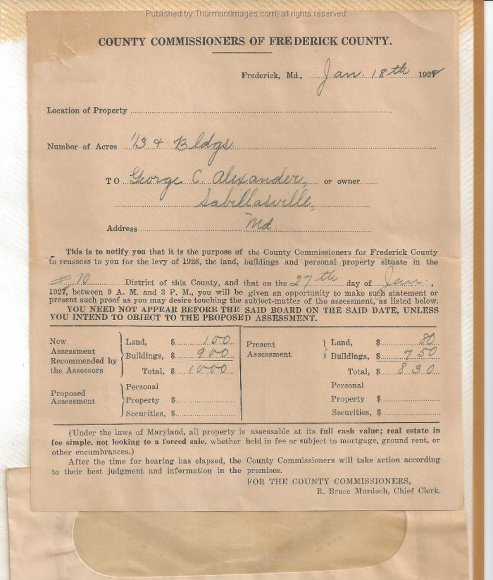 Published by Thurmontimages.com, all rights reserved
COUNTY COMMISSIONERS OF FREDERICK COUNTY.
Frederick, Md., Jan. 18th 1928
Location of Property
Number of Acres 13 + Bldgs
TO George C. Alexander, or owner
Sabillasville,
Address Md.
This is to notify you that it is the purpose of the County Commissioners for Frederick County
to reassess to you for the levy of 1928, the land, buildings and personal property situate in the
# 10 District of this County, and that on the 27th day of Jan.,
1927, between 9 A. M. and 3 P. M., you will be given an opportunity to make such statement or
present such proof as you may desire touching the subject-matter of the assessment, as listed below.
YOU NEED NOT APPEAR BEFORE THE SAID BOARD ON THE SAID DATE, UNLESS
YOU INTEND TO OBJECT TO THE PROPOSED ASSESSMENT.
New Assessment Recommended by the Assessors
Land, $ 100
Buildings, $ 900
Total, $ 1000
Proposed Assessment
Personal
Property $
Securities, $
Present Assessment
Land, $ 80
Buildings, $ 750
Total, $ 830
Personal
Property $
Securities, $
(Under the laws of Maryland, all property is assessable at its full cash value; real estate in
fee simple, not looking to a forced sale, whether held in fee or subject to mortgage, ground rent, or
other encumbrances.)
After the time for hearing has elapsed, the County Commissioners will take action according
to their best judgment and information in the premises.
FOR THE COUNTY COMMISSIONERS,
R. Bruce Murdoch, Chief Clerk.